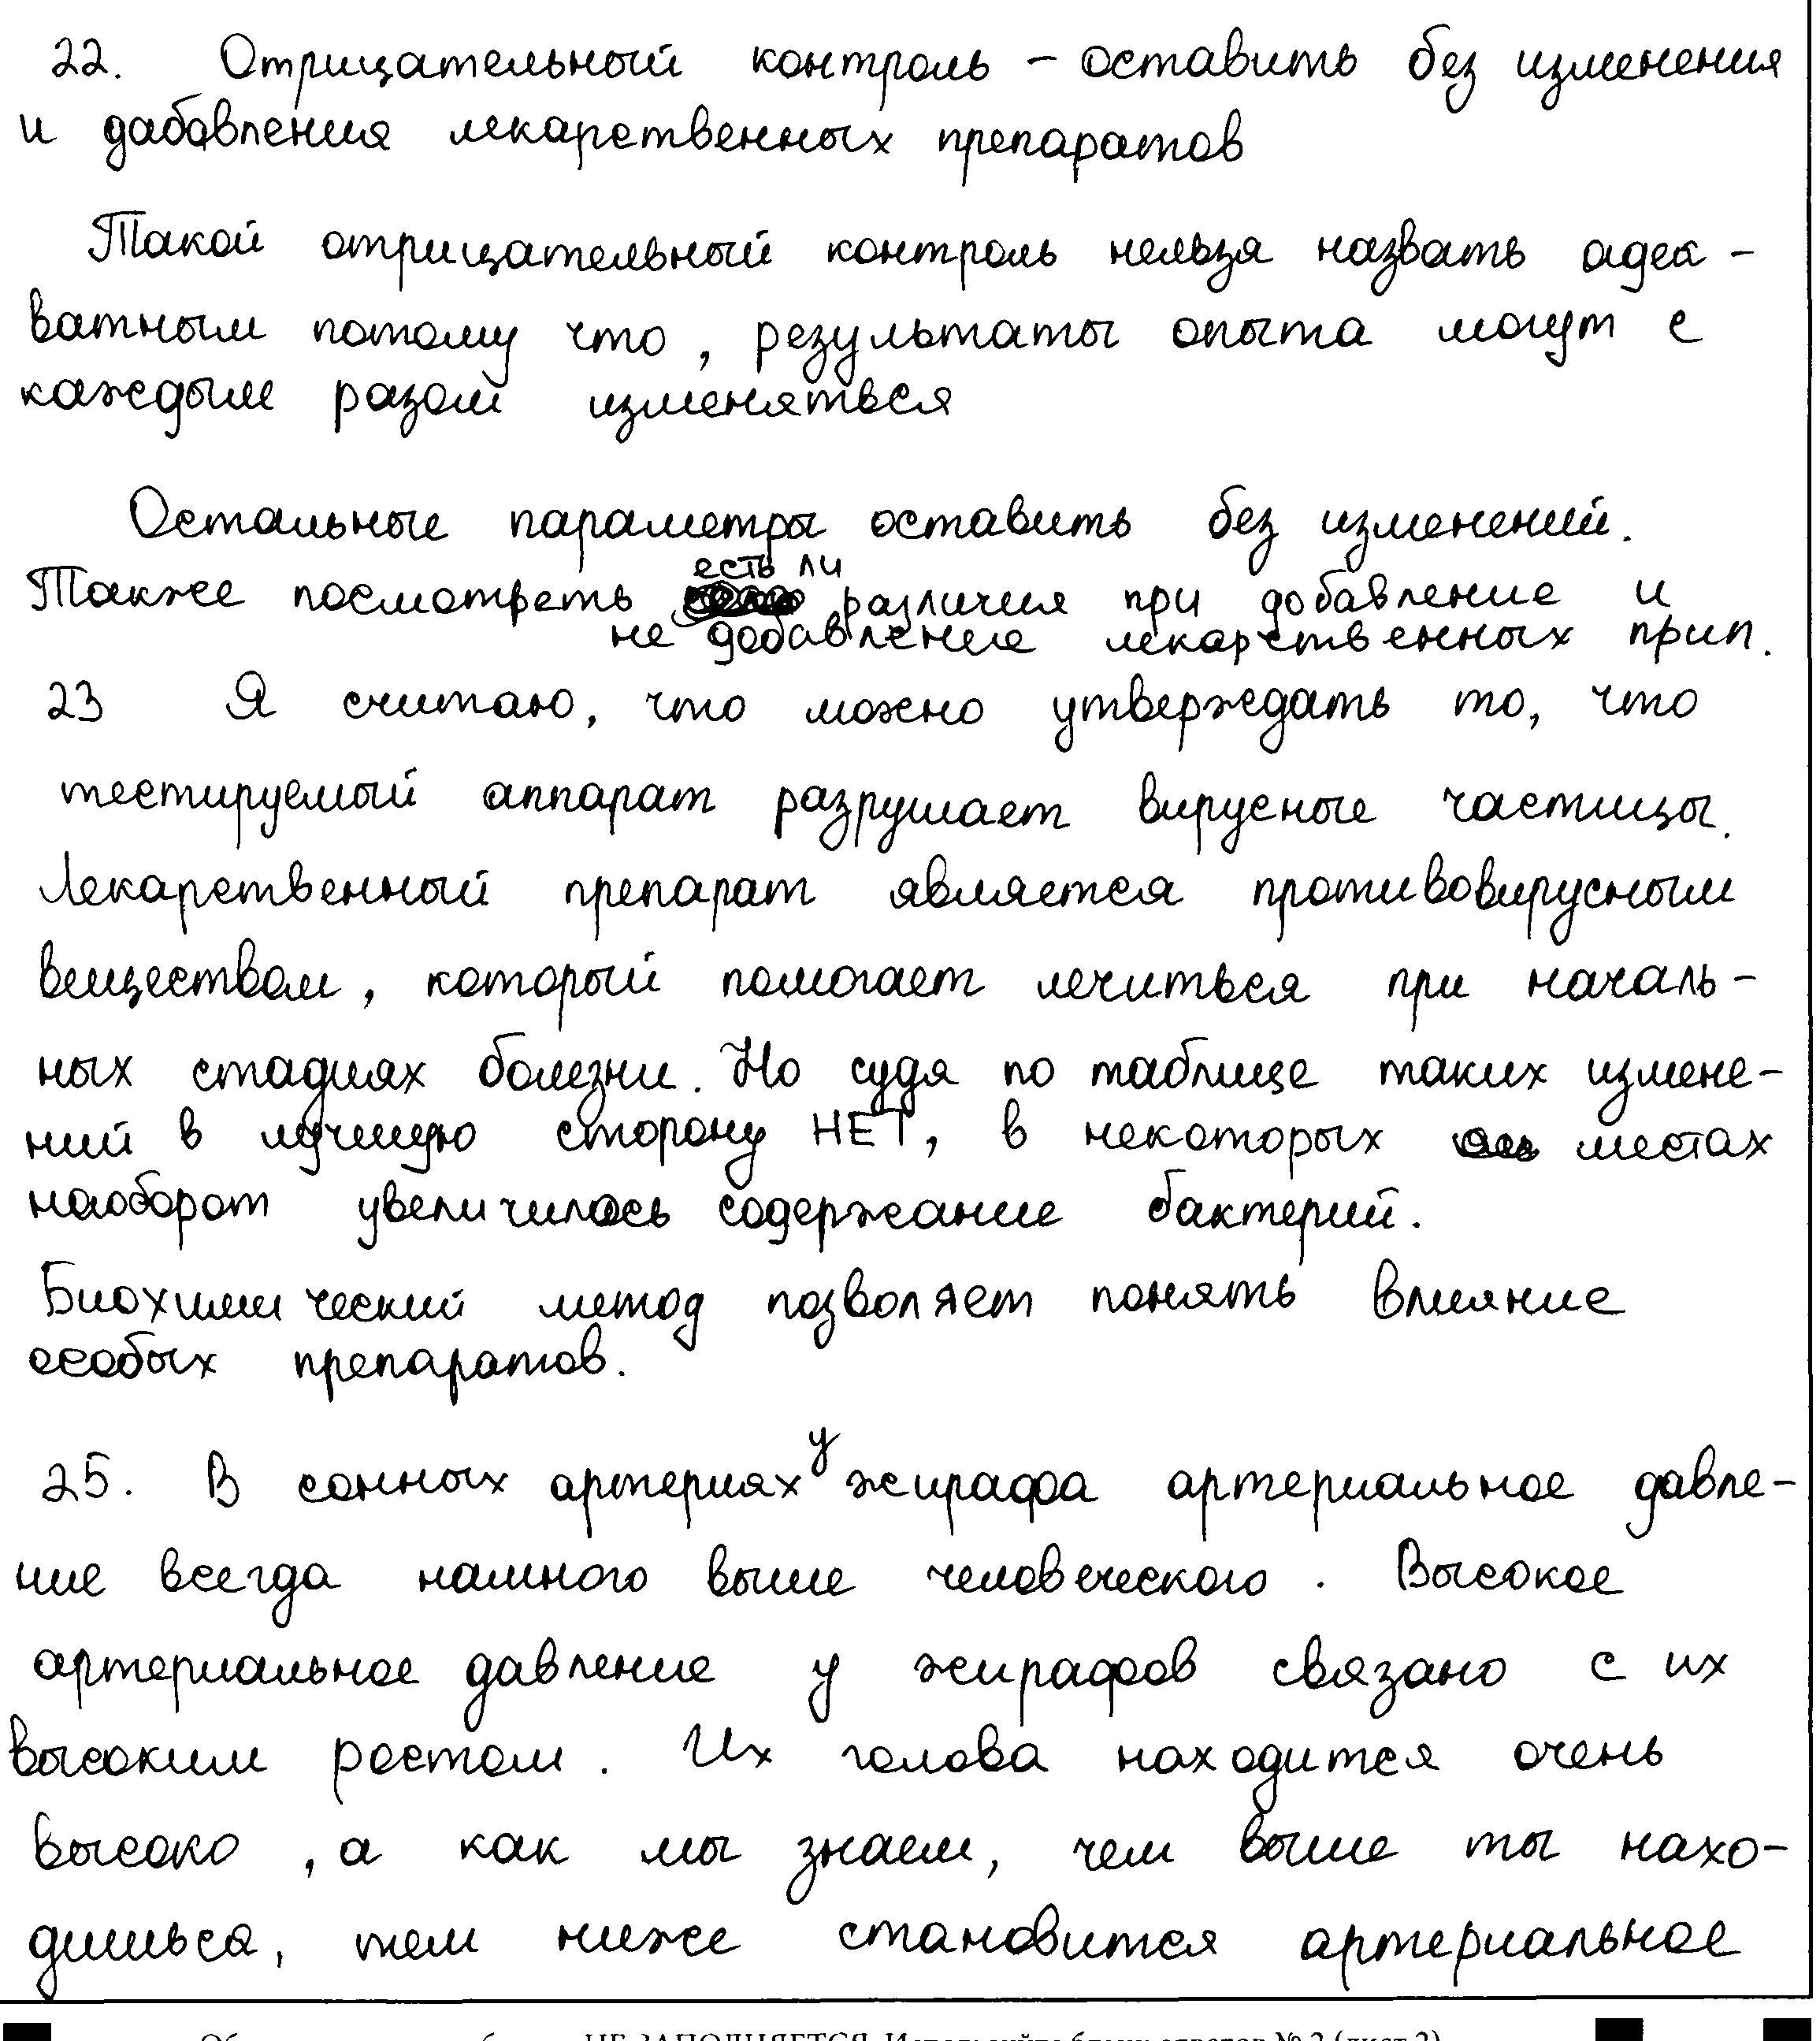 22. Отрицательный контроль – оставить без изменения
и дабавления лекарственных препаратов
Такой отрицательный контроль нельзя назвать адек-
ватным потому что, результаты опыта могут с
каждым разом изменяться
Остальные параметры оставить без изменений.
есть ли
Также посмотреть различия при добавление и
не добавление лекарственных прип.
23 Я считаю, что можно утверждать то, что
тестируемый аппарат разрушает вирусные частицы.
Лекарственный препарат является противовирусным
веществом, который помогает лечиться при началь-
ных стадиях болезни. Но судя по таблице таких измене-
ний в лучшую сторону НЕТ, в некоторых местах
наоборот увеличилось содержание бактерий.
Биохимический метод позволяет понять влияние
особых препаратов.
25. В сонных артериях у жирафа артериальное давле-
ние всегда намного выше человеческого. Высокое
артериальное давление у жирафов связано с их
высоким ростом. Их голова находится очень
высоко, а как мы знаем, чем выше ты нахо-
дишься, тем ниже становится артериальное